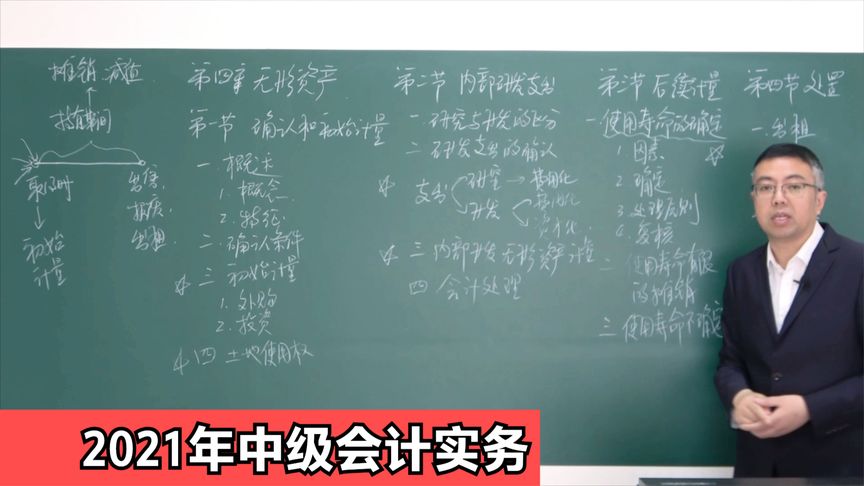 摊销.减值
持有期间
取得时
初始
计量
出售,
报废,
出租
第四章 无形资产
第一节 确认和初始计量
一.概述
1.概念
2.特征
二.确认条件
☆ 三.初始计量
1.外购
2.投资
☆ 四 土地使用权
第二节 内部研发支出
一.研究与开发的区分
二.研发支出的确认
☆ 支出 研究→费用化
开发 费用化
资本化
☆ 三.内部开发无形资产计量
四 会计处理
第三节 后续计量
一.使用寿命的确定
1.因素
2.确定
3.处理原则
4.复核
二.使用寿命有限
的摊销
三.使用寿命不确定
第四节 处置
一.出租
2021年中级会计实务